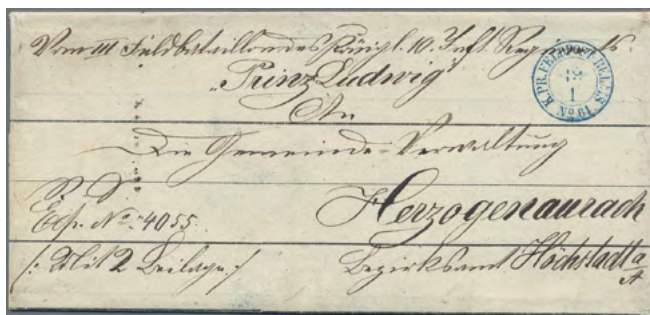 Vom III Feldbataillon des Königl. 10. Inft. Regiments
"Prinz Ludwig"
An
Die Gemeinde-Verwaltung
Herzogenaurach
Exp. No: 4055.
/: Mit 2 Beilage :/
Bezirksamt Höchstadt a/A
K.PR.FELDPOST-RELAIS
19
1
No 61.